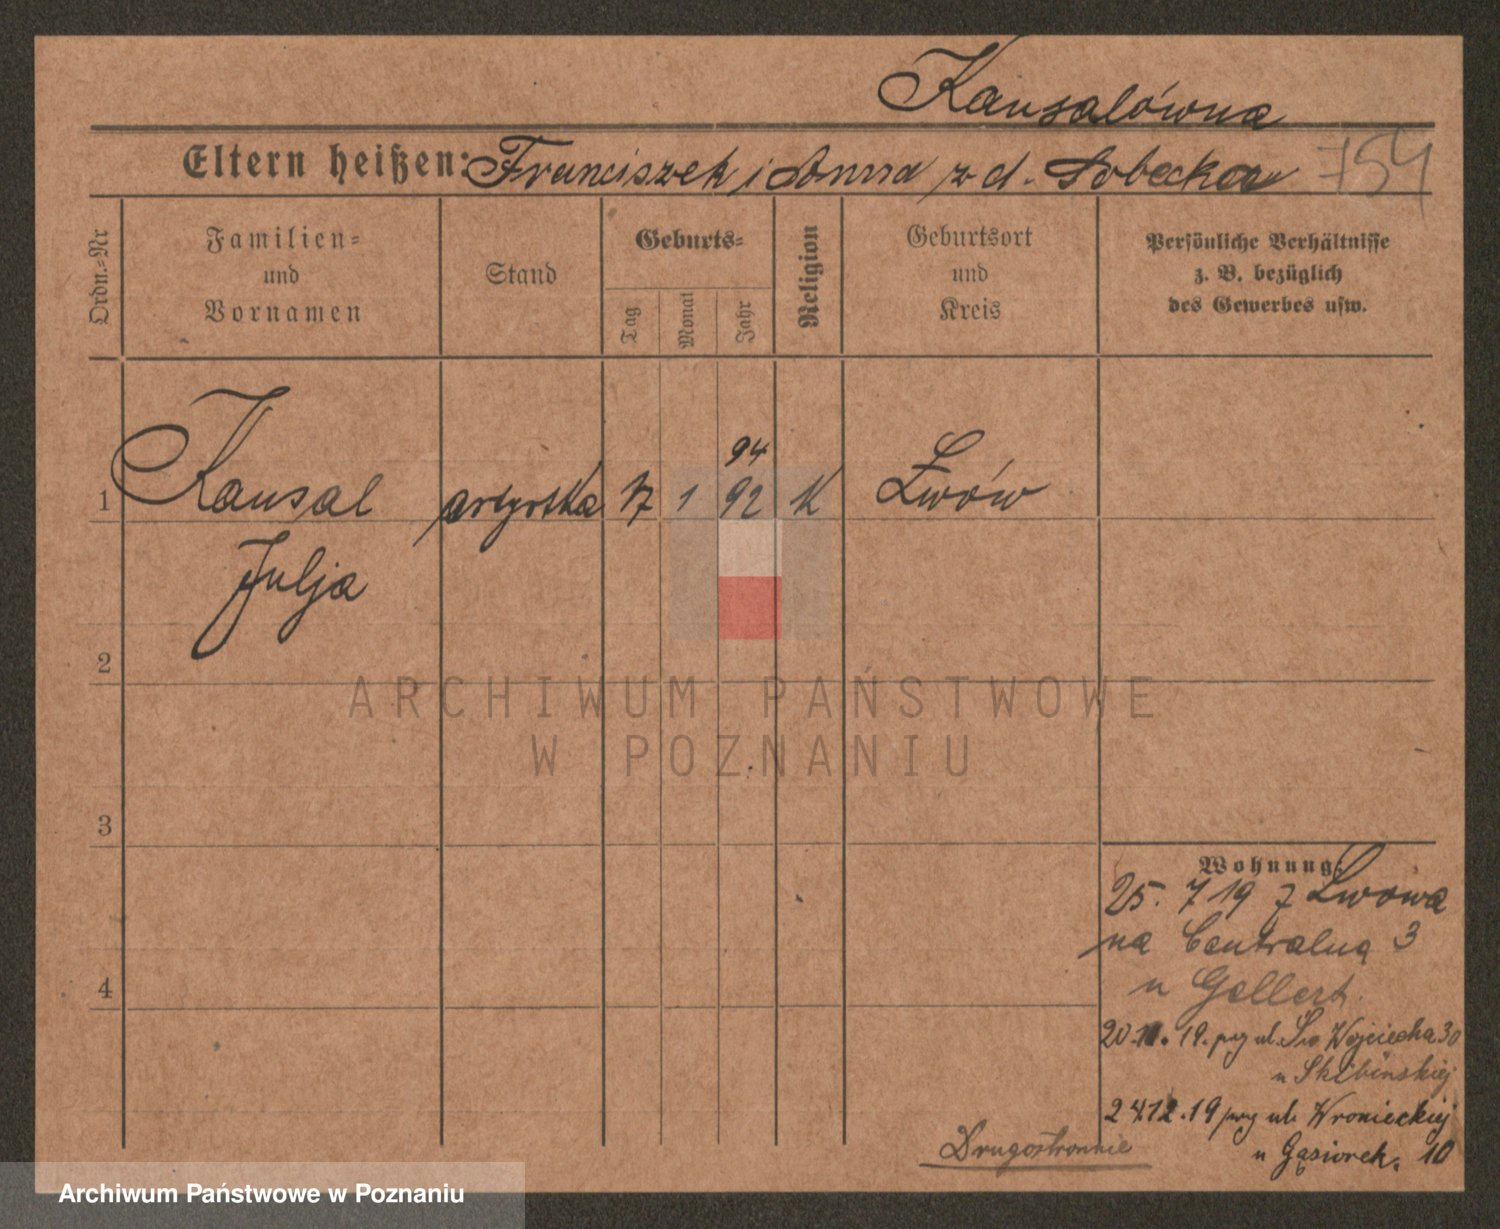 Kansalówna
Eltern heißen: Franciszek i Anna z d. Sobecka 754
Ordn.-Nr
Familien-
und
Vornamen
Stand
Geburts-
Tag
Monat
Jahr
Religion
Geburtsort
und
Kreis
Persönliche Verhältnisse
z. B. bezüglich
des Gewerbes usw.
94
1 Kansal artystka 17 1 92 K Lwów
Julja
2
ARCHIWUM PAŃSTWOWE
W POZNANIU
3
Wohnung:
25. 7 19 z Lwowa
na Centralną 3
4
u Gellert.
20.11.19. przy ul. Św Wojciecha 30
u Skibińskiej
24.12.19 przy ul. Wronieckiej
u Gąsiorek. 10
Drugostronnie
Archiwum Państwowe w Poznaniu